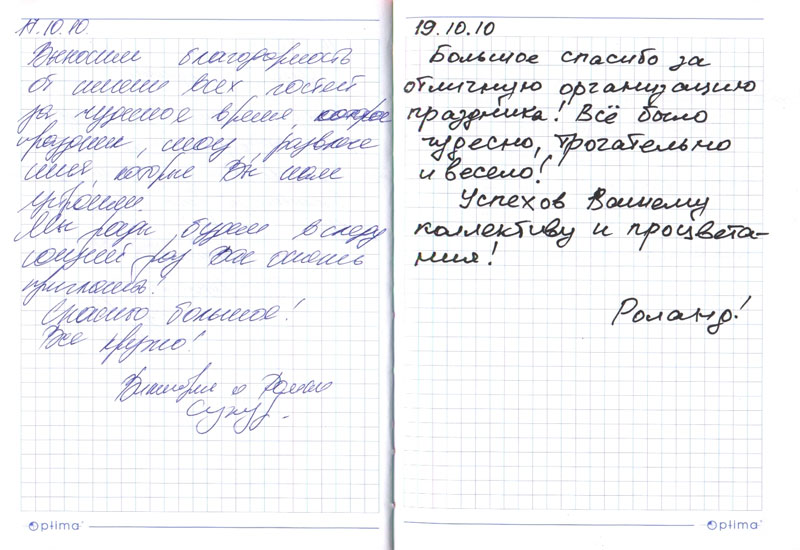 17.10.10.
Выносим благодарность
от имени всех гостей
за чудесное время,
праздник, шоу, развлече
ния, которые Вы нам
устроили
Мы рады будем в следу
ющий раз Вас опять
пригласить!
Спасибо большое!
Все круто!
Виктория и Роман
Optima
19.10.10
Большое спасибо за
отличную организацию
праздника! Всё было
чудесно, трогательно
и весело!
Успехов Вашему
коллективу и процвета-
ния!
Роланд!
Optima